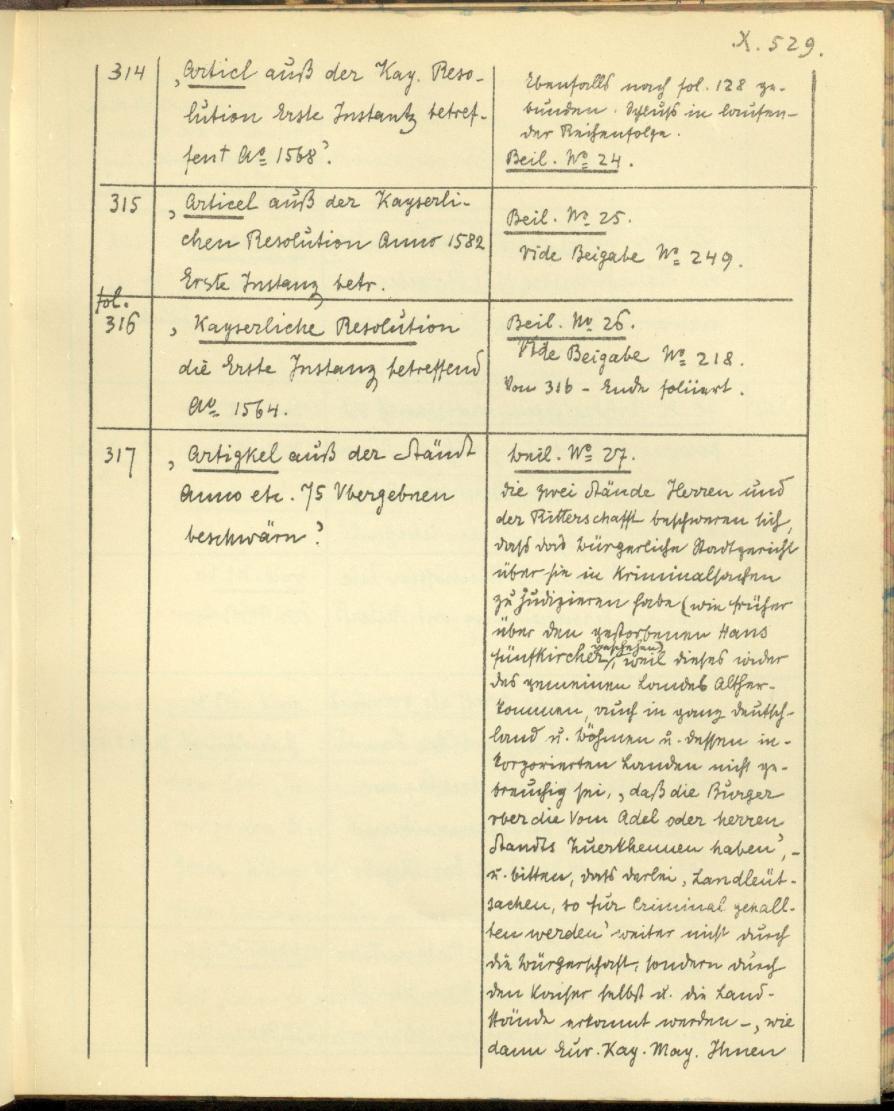 X. 529.
314
„Articl auß der Kay. Reso-
lution Erste Instantz betref-
fent Ao 1568‟.
Ebenfalls nach fol. 128 ge-
bunden. Schluß in laufen-
der Reihenfolge.
Beil. No 24.
315
„Articel auß der Kayserli-
chen Resolution Anno 1582
Erste Instanz betr.
Beil. No 25.
Vide Beigabe No 249.
fol.
316
„Kayserliche Resolution
die Erste Instanz betreffend
Ao 1564.
Beil. No 26.
Vide Beigabe No 218.
Von 316 - Ende foliiert.
317
„Artigkel auß der Ständt
Anno etc. 75 Vbergebnen
beschwärn‟
Beil. No 27.
Die zwei Stände Herren und
der Ritterschafft beschweren sich,
daß das bürgerliche Stadtgericht
über sie in Kriminalsachen
zu judizieren habe (wie früher
über den gestorbenen Hans
Fünfkircher geschehen), weil dieses wider
des gemeinen Landes Alther-
kommen, auch in ganz Deutsch-
land u. Böhmen u. dessen in-
korporierten Landen nicht ge-
breuchig sei, „daß die Burger
vber die vom Adel oder herren
Standts zuerkhennen haben‟, -
u. bitten, daß derlei „Landleüt-
sachen, so für Criminal gehall-
ten werden‟ weiter nicht durch
die Bürgerschaft, sondern durch
den Kaiser selbst u. die Land-
stände erkannt werden -, „wie
dann Eur. Kay. May. Ihnen